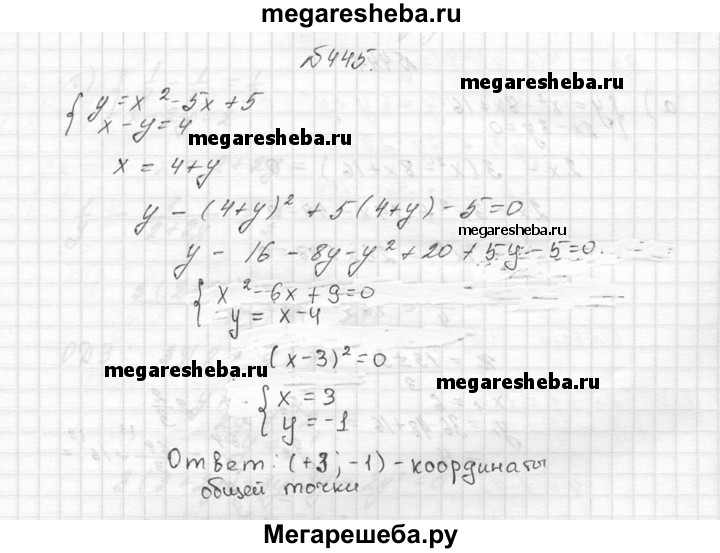 megaresheba.ru
№445.
megaresheba.ru
{ y = x² - 5x + 5
x - y = 4
megaresheba.ru
x = 4 + y
y - (4+y)² + 5(4+y) - 5 = 0
megaresheba.ru
y - 16 - 8y - y² + 20 + 5y - 5 = 0.
{ x² - 6x + 9 = 0
y = x - 4
(x-3)² = 0
megaresheba.ru
megaresheba.ru
{ x = 3
y = -1
Ответ: (+3; -1) - координаты
общей точки
Мегарешеба.ру